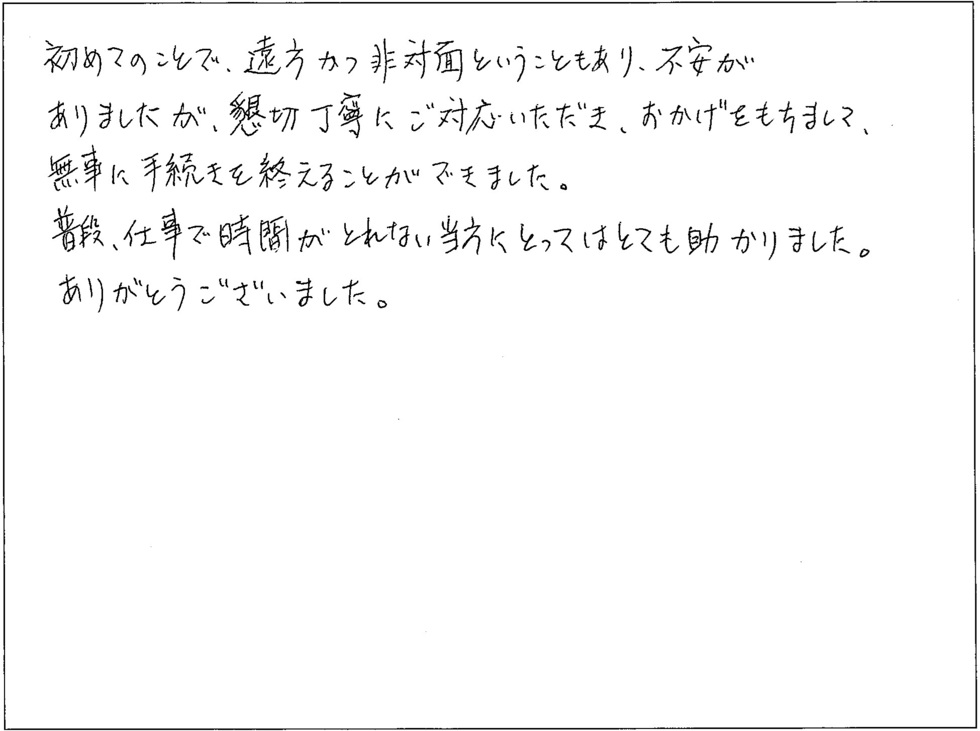 初めてのことで、遠方かつ非対面ということもあり、不安が
ありましたが、懇切丁寧にご対応いただき、おかげをもちまして、
無事に手続きを終えることができました。
普段、仕事で時間がとれない当方にとってはとても助かりました。
ありがとうございました。